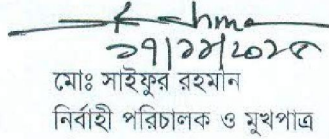 ২৭/১১/২০২৫
মোঃ সাইফুর রহমান
নির্বাহী পরিচালক ও মুখপাত্র